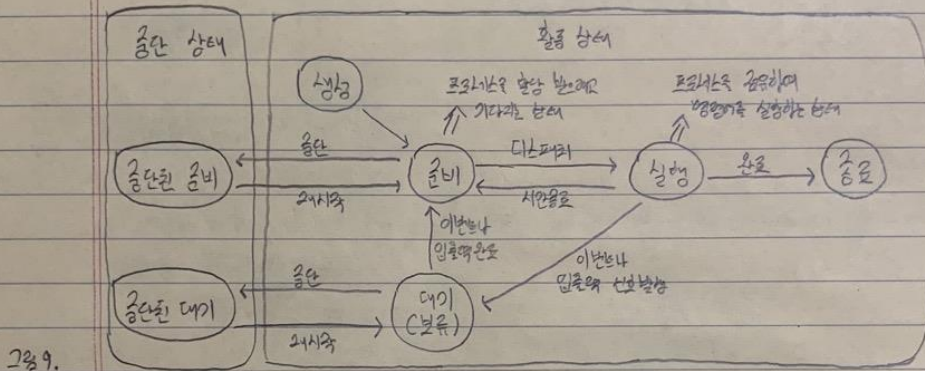 중단 상태
활동 상태
생성
프로세스를 할당 받으려고
기다리는 상태
프로세스를 점유하여
명령어를 실행하는 상태
중단된 준비
중단
재시작
준비
디스패치
시간종료
실행
완료
종료
이벤트나
입출력완료
이벤트나
입출력 신호발생
중단된 대기
중단
재시작
대기
(보류)
그림 9.